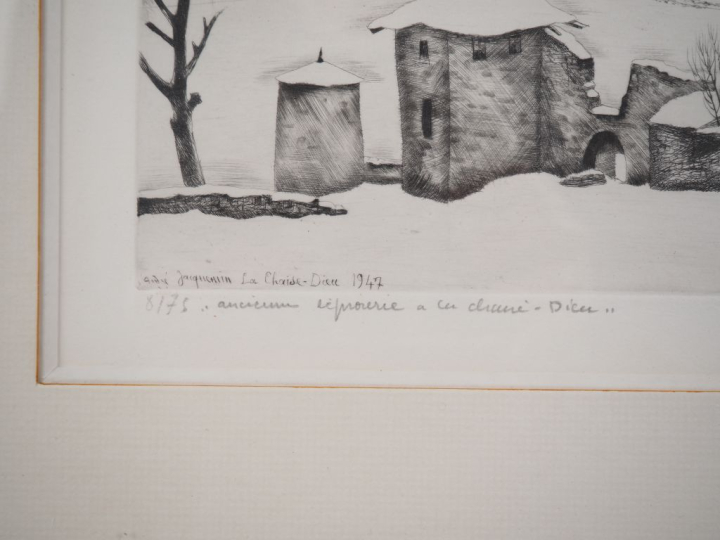 andré Jacquemin La Chaise-Dieu 1947
8/75 "ancienne léproserie a la chaise-Dieu"